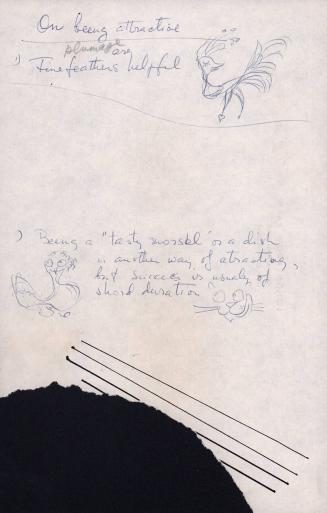 On being attractive
plumage
1) Fine feathers are helpful
) Being a "tasty morssel" or a dish
is another way of atracting,
but success is usualy of
short duration